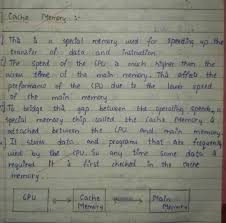 Cache Memory :-
1) This is a special memory used for speeding up the
transfer of data and instruction.
2) The speed of the CPU is much higher than the
access time of the main memory. This affects the
performance of the CPU due to the lower speed
of the main memory.
3) To bridge this gap between the operating speeds, a
special memory chip called the Cache Memory is
attached between the CPU and main memory.
4) It stores data and programs that are frequently
used by the CPU. So any time some data is
required it is first checked in the cache
memory.
CPU
Cache Memory
Main Memory